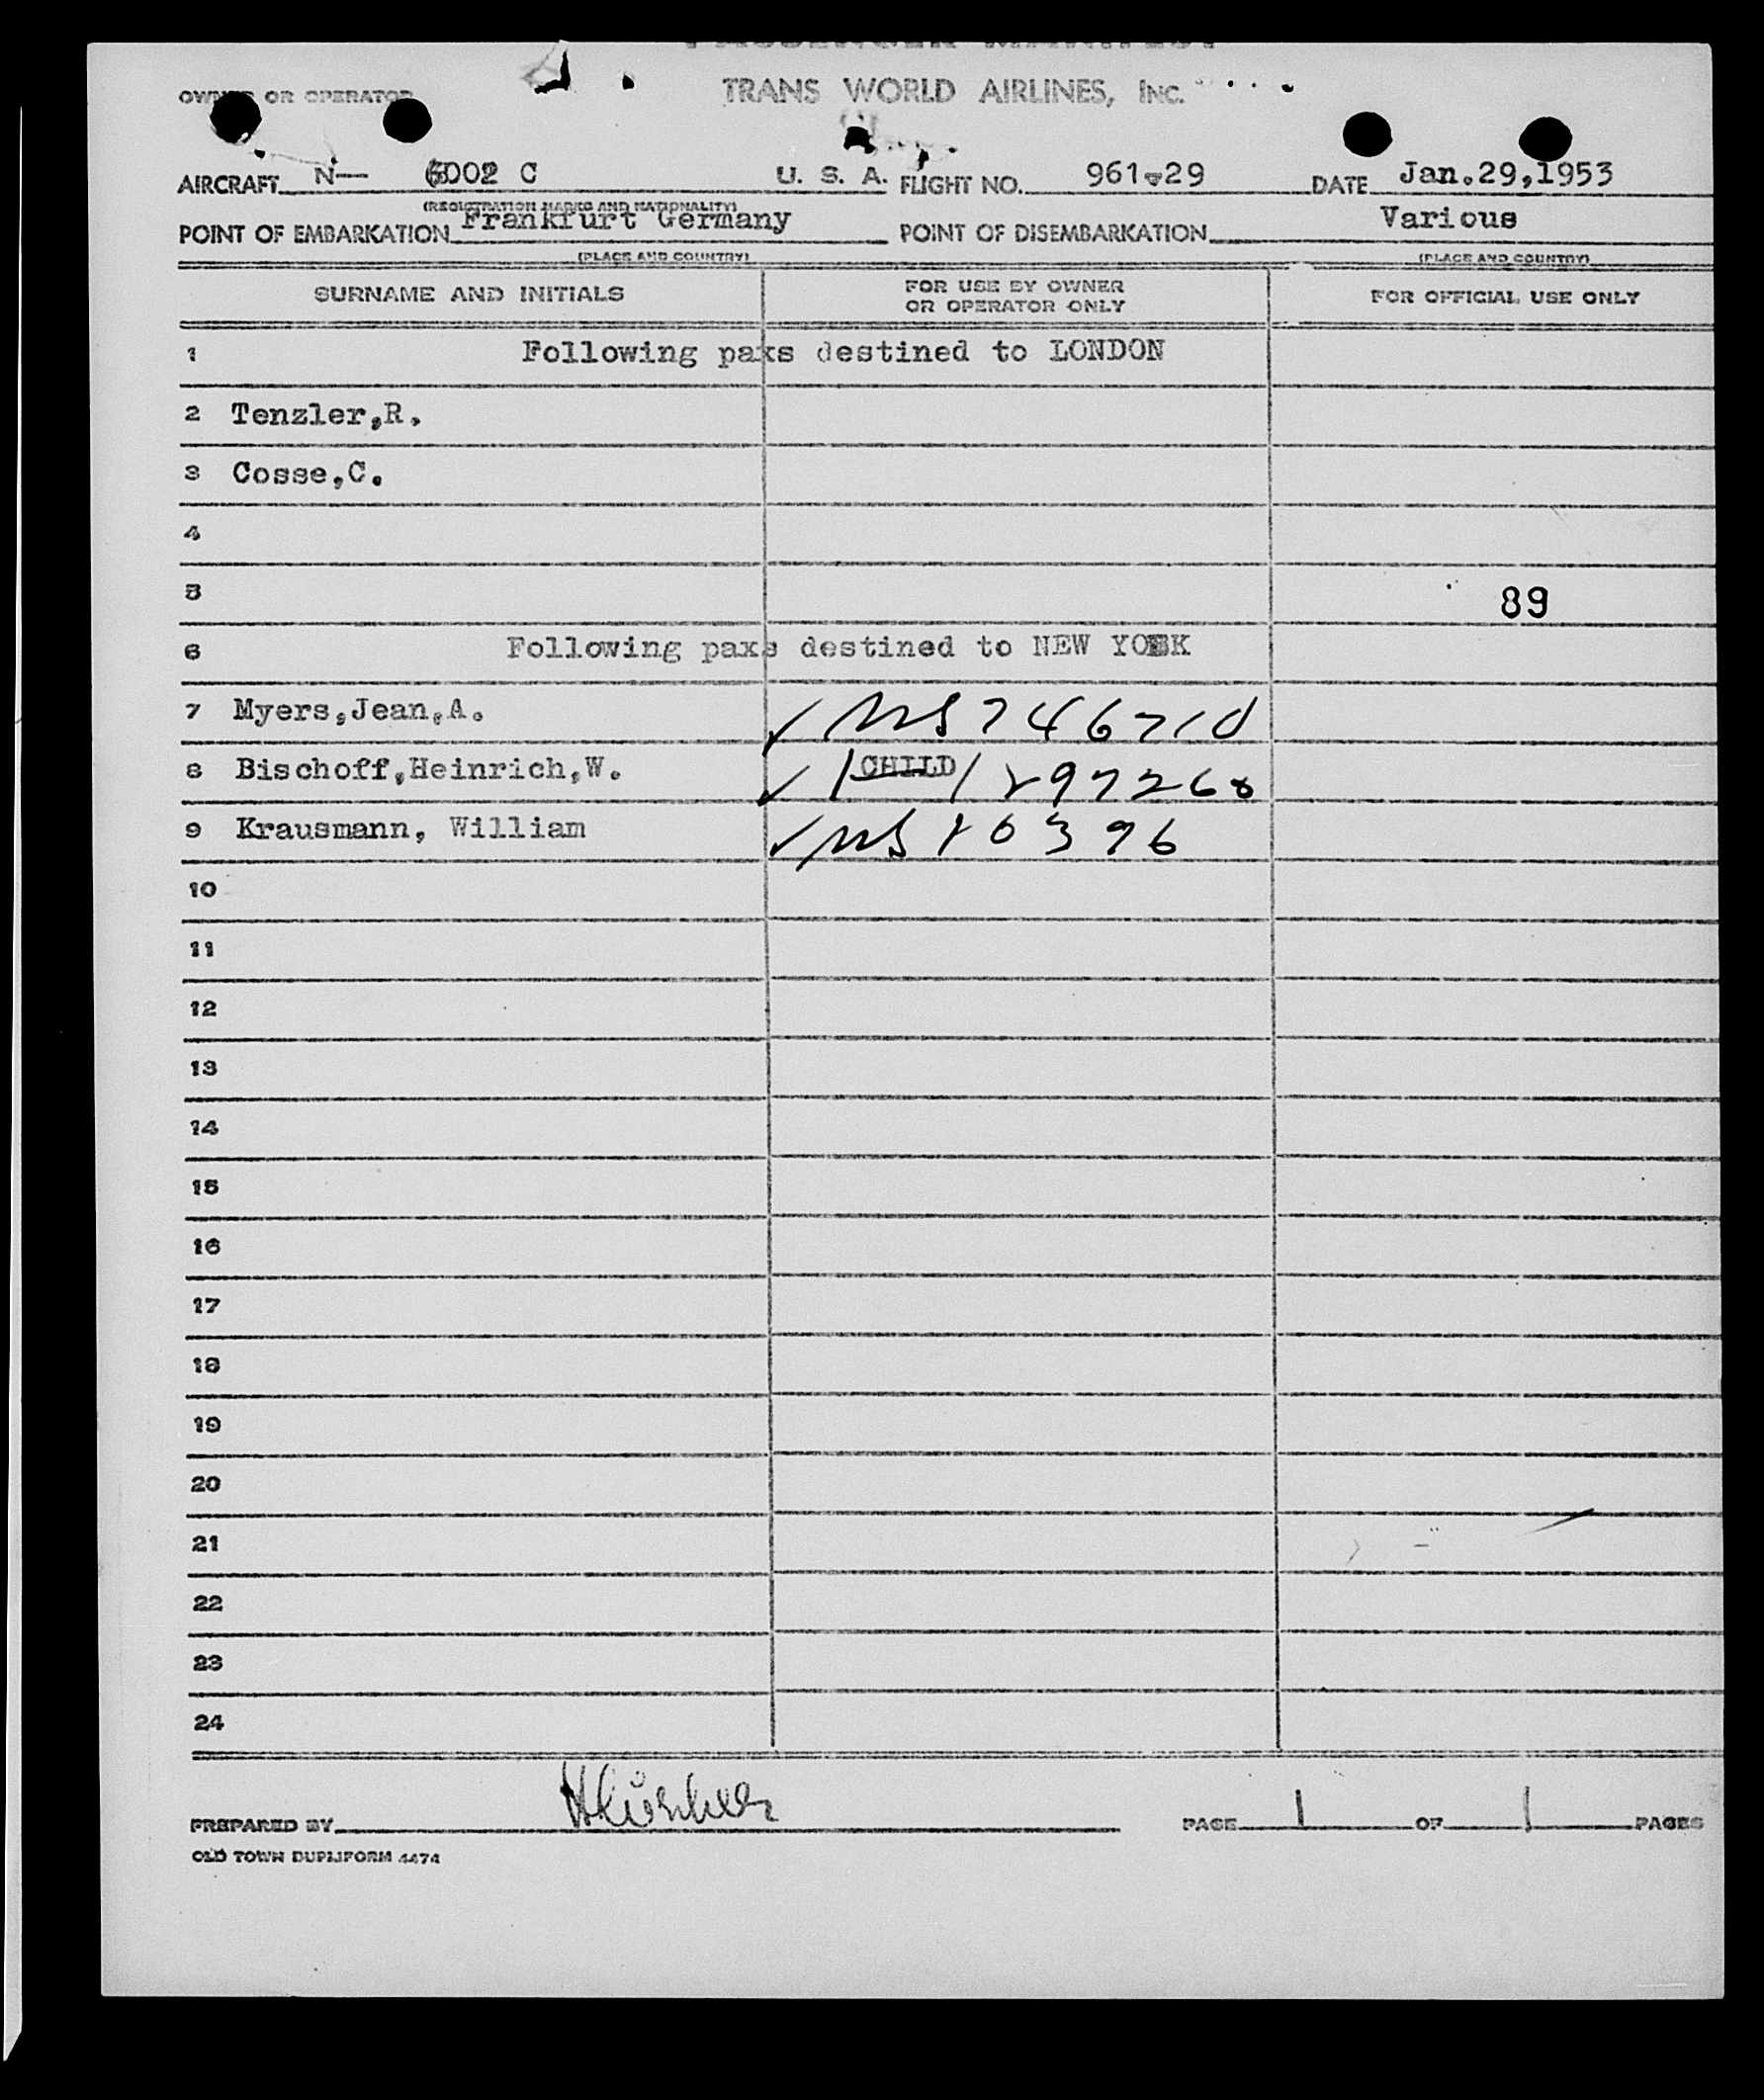 PASSENGER MANIFEST
OWNER OR OPERATOR TRANS WORLD AIRLINES, INC.
AIRCRAFT N— 6002 C U. S. A. FLIGHT NO. 961-29 DATE Jan.29,1953
(REGISTRATION MARKS AND NATIONALITY)
POINT OF EMBARKATION Frankfurt Germany POINT OF DISEMBARKATION Various
(PLACE AND COUNTRY) (PLACE AND COUNTRY)
SURNAME AND INITIALS FOR USE BY OWNER OR OPERATOR ONLY FOR OFFICIAL USE ONLY
1 Following paxs destined to LONDON
2 Tenzler,R.
3 Cosse,C.
4
5 89
6 Following paxs destined to NEW YORK
7 Myers,Jean,A. ✓
8 Bischoff,Heinrich,W. ✓ CHILD
9 Krausmann, William ✓
10
11
12
13
14
15
16
17
18
19
20
21
22
23
24
PREPARED BY PAGE 1 OF 1 PAGES
OLD TOWN DUPLIFORM 4474